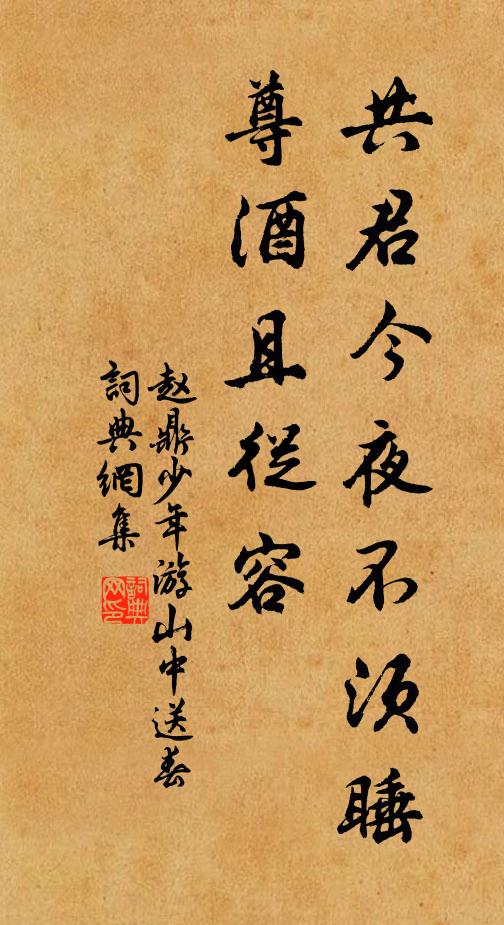 共君今夜不须睡
尊酒且從容
赵鼎少年游山中送春
詞典網集
詞典網印